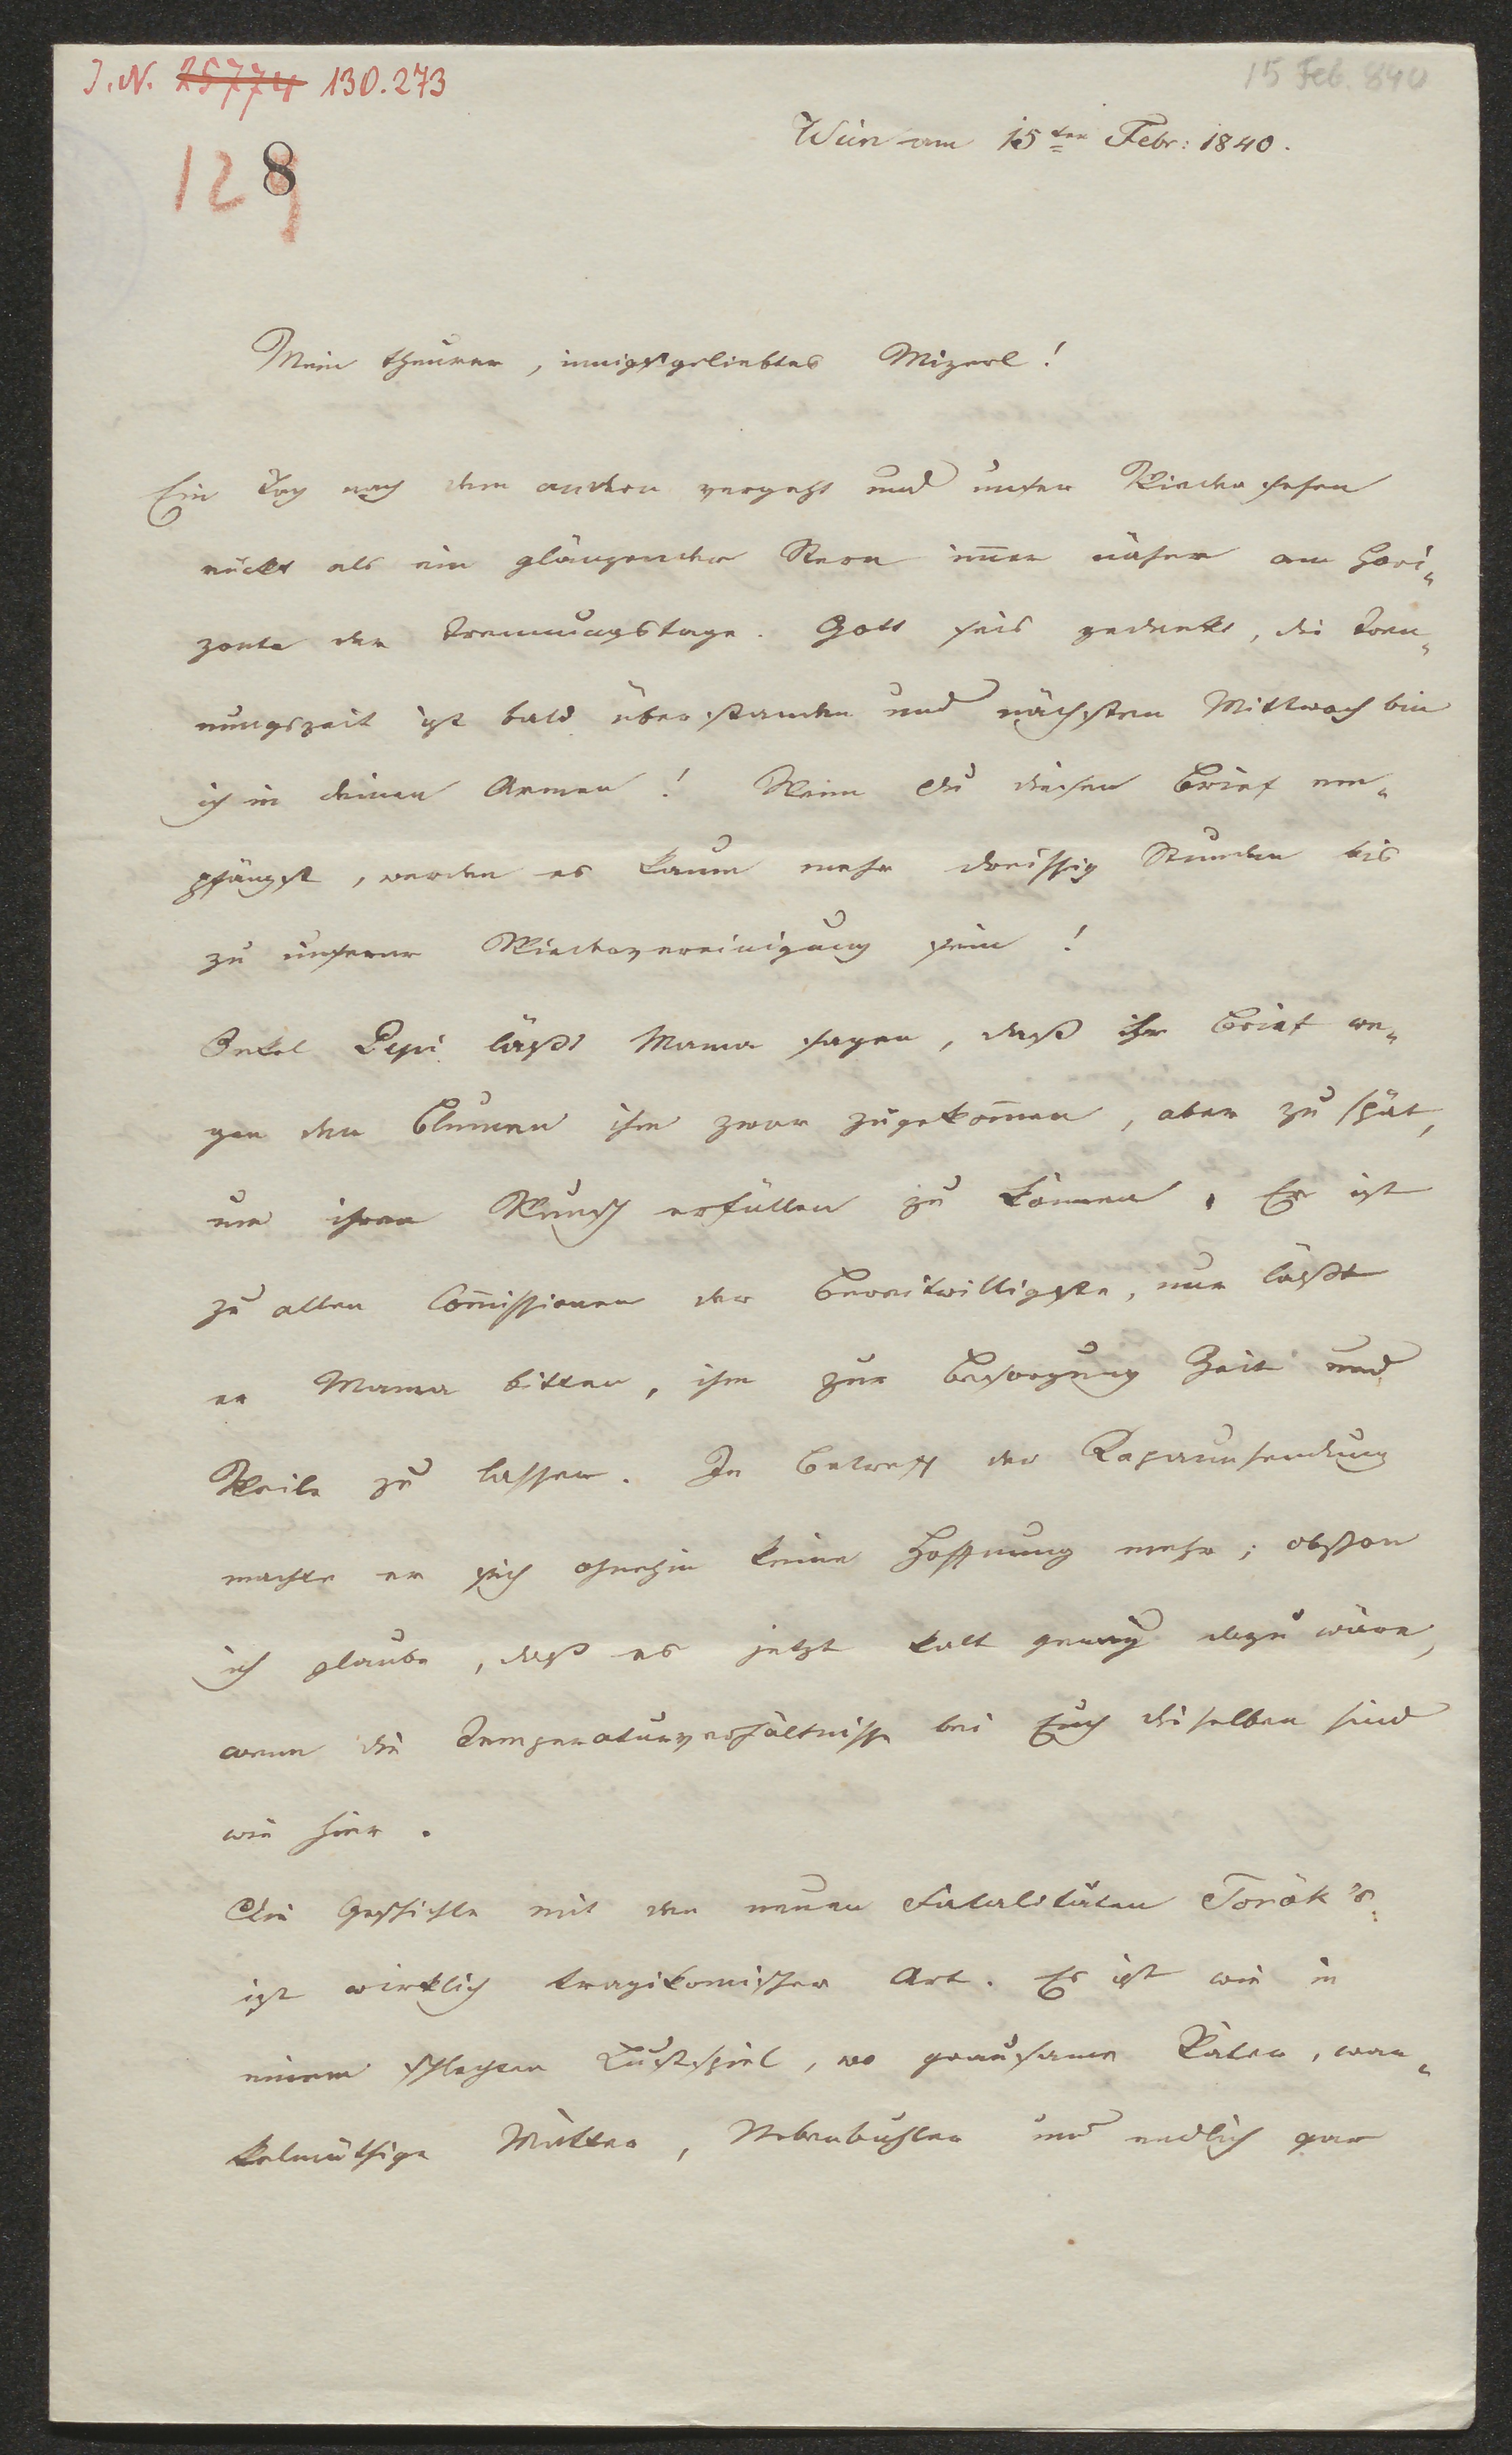 J. N. 25774 130.273
15 Feb. 840
Wien am 15ten Febr: 1840.
128
Mein theures, innigstgeliebtes Mizerl!
Ein Tag nach dem andern vergeht und unser Wiedersehen
rückt als ein glänzender Stern im̄er näher am Hori-
zonte der Trennungstage. Gott seis gedankt, die Tren-
nungszeit ist bald überstanden und nächsten Mittwoch bin
ich in deinen Armen! Wenn Du diesen Brief em-
pfängst, werden es kaum mehr dreissig Stunden bis
zu unserer Wiedervereinigung sein!
Onkel Pepi läßt Mama sagen, daß ihr Brief we-
gen den Blumen ihm zwar zugekom̄en, aber zu spät,
um ihren Wunsch erfüllen zu können. Er ist
zu allen Com̄issionen der Bereitwilligste, nur läßt
er Mama bitten, ihm zur Besorgung Zeit und
Weile zu lassen. In Betreff der Kapaunsendung
machte er sich ohnehin keine Hoffnung mehr; obschon
ich glaube, daß es jetzt kalt genug dazu wäre,
wenn die Temperaturverhältnisse bei Euch dieselben sind
wie hier.
Die Geschichte mit den neuen Fatalitäten Török's
ist wirklich tragikomischer Art. Es ist wie in
einem schlechten Lustspiel, wo grausame Väter, wan-
kelmüthige Mütter, Nebenbuhler und endlich gar